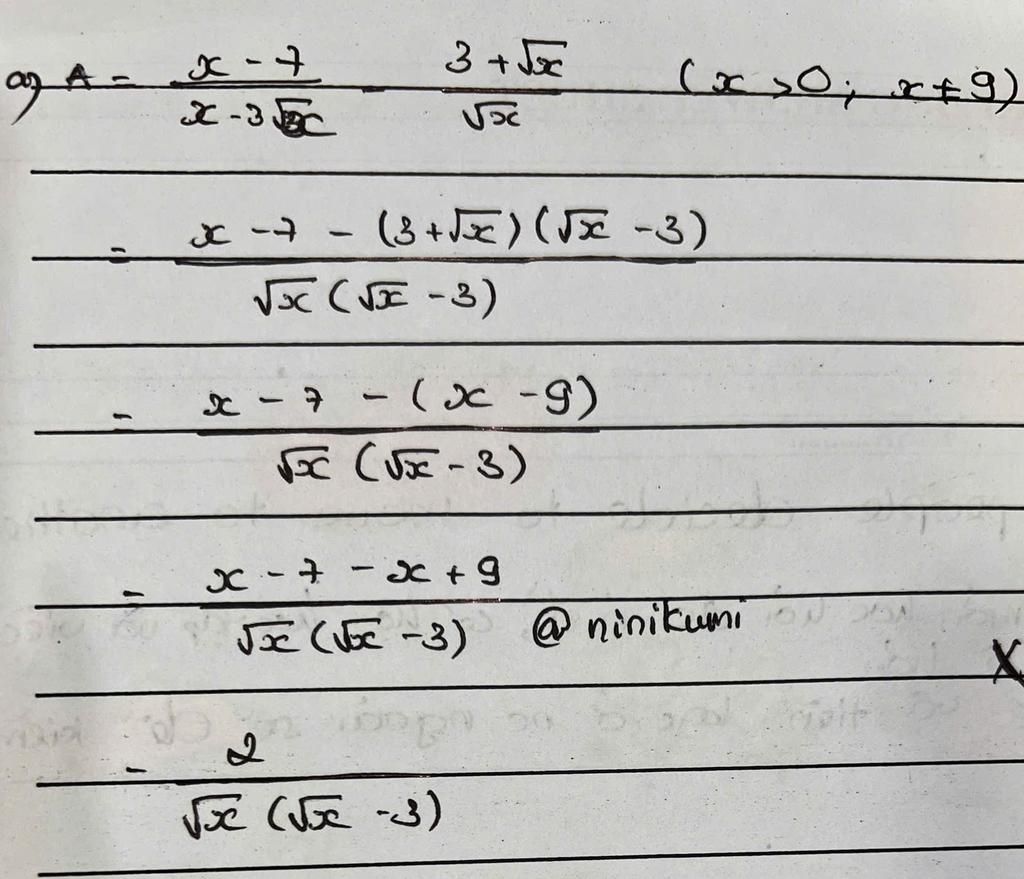 a) A = (x - 7)/(x - 3√x) - (3 + √x)/√x (x > 0; x ≠ 9)
= (x - 7 - (3 + √x)(√x - 3))/(√x(√x - 3))
= (x - 7 - (x - 9))/(√x(√x - 3))
= (x - 7 - x + 9)/(√x(√x - 3)) @ninikumi
= 2/(√x(√x - 3))